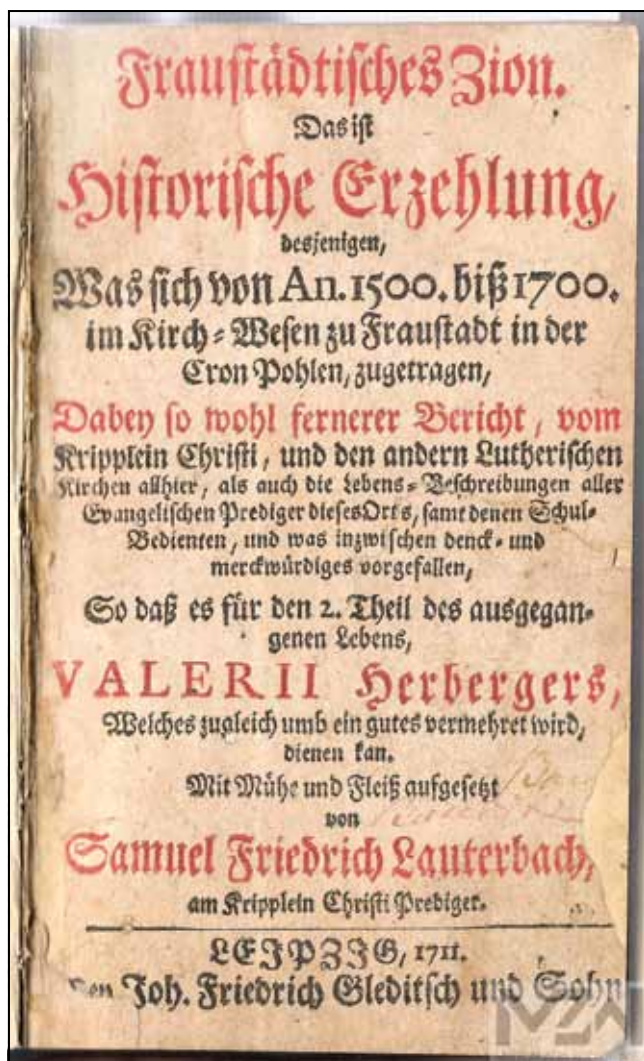 Fraustädtisches Zion.
Das ist
Historische Erzehlung,
desjenigen,
Was sich von An. 1500. biß 1700.
im Kirch-Wesen zu Fraustadt in der
Cron Pohlen, zugetragen,
Dabey so wohl fernerer Bericht, vom
Kripplein Christi, und den andern Lutherischen
Kirchen allhier, als auch die Lebens-Beschreibungen aller
Evangelischen Prediger dieses Orts, samt denen Schul-
Bedienten, und was inzwischen denck- und
merckwürdiges vorgefallen,
So daß es für den 2. Theil des ausgegan-
genen Lebens,
VALERII Herbergers,
Welches zugleich umb ein gutes vermehret wird,
dienen kan.
Mit Mühe und Fleiß aufgesetzt
von
Samuel Friedrich Lauterbach,
am Kripplein Christi Prediger.
LEIPZIG, 1711.
Joh. Friedrich Gleditsch und Sohn